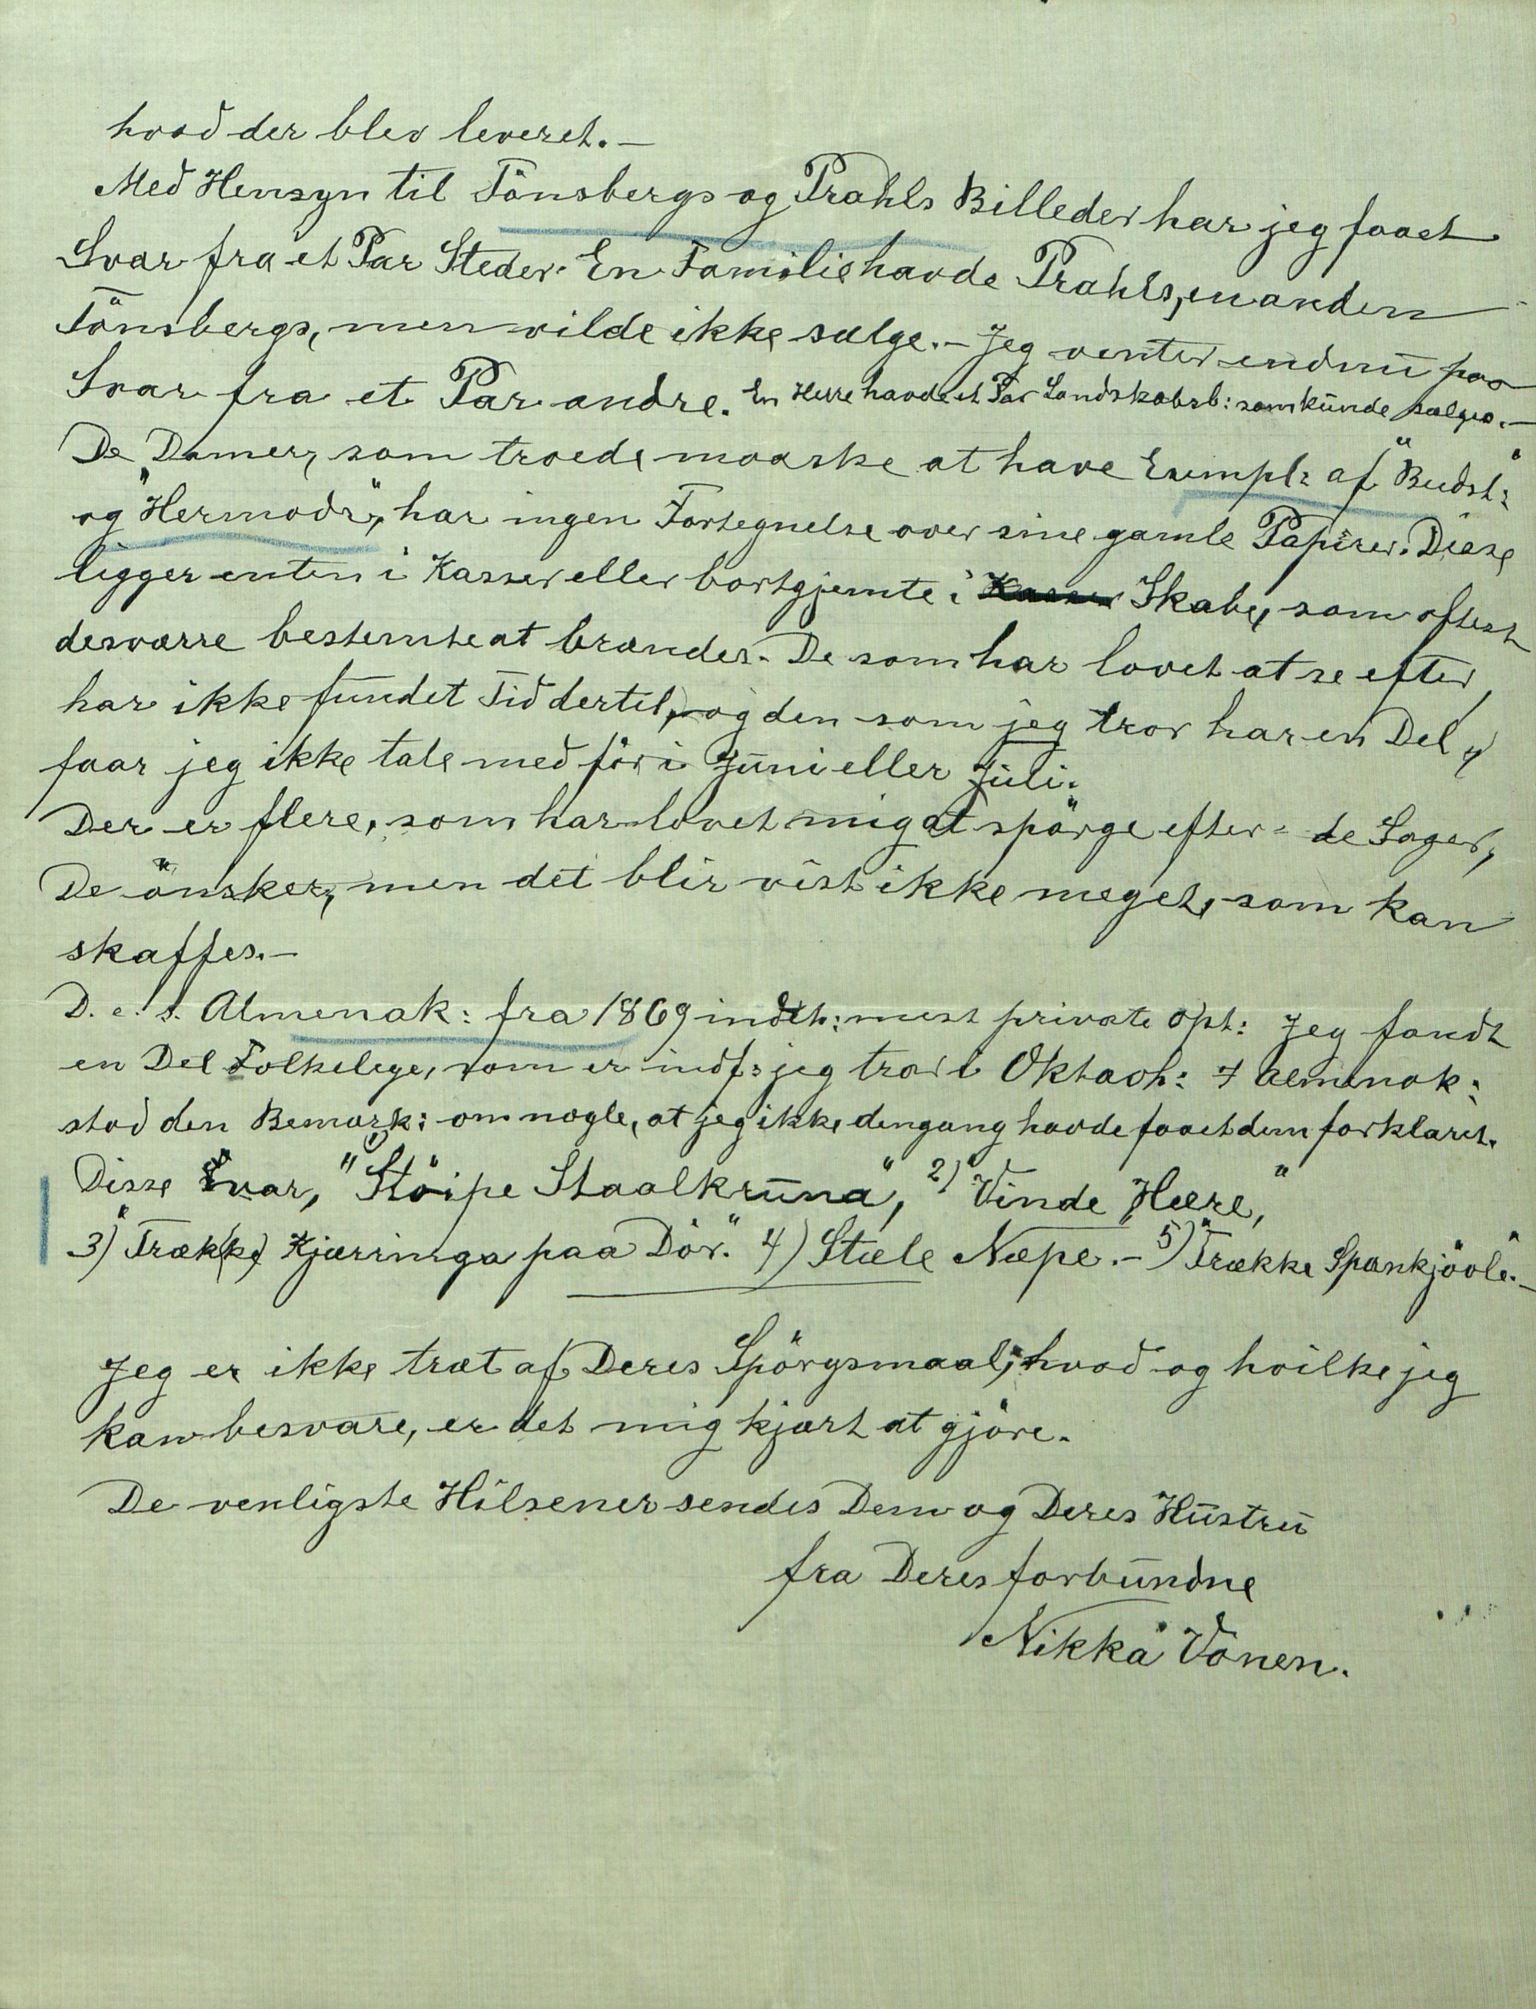 hvad der blev leveret. –
Med Hensyn til Tönsbergs og Prahls Billeder har jeg faaet
Svar fra et Par Steder. En Familie havde Prahls, en anden
Tönsbergs, men vilde ikke sælge. – Jeg venter endnu paa
Svar fra et Par andre. En Herre havde et Par Landskabsb: som kunde sælges. –
De Damer, som troede maaske at have Exempl: af "Budst:"
og "Hermods", har ingen Fortegnelse over sine gamle Papirer. Disse
ligger enten i Kasser eller bortgjemte i Skabe, som oftest
desværre bestemte at brændes. De som har lovet at se efter,
har ikke fundet Tid dertil, og den som jeg tror har en Del,
faar jeg ikke tale med för i Juni eller Juli.
Der er flere, som har lovet mig at spörge efter de Sager,
De önsker, men det blir vist ikke meget, som kan
skaffes. –
D. e. s. Almenak: fra 1869 indeh: mest private Opt: Jeg fandt
en Del Folkelege, som er indf: jeg tror i Oktavh: I Almenak:
stod den Bemærk: om nogle, at jeg ikke dengang havde faaet dem forklaret.
Disse var, 1) "Stöipe Staalkruna", 2) "Vinde Hære,"
3) "Trække Kjærringa paa Dör." 4) Stæle Næpe. – 5) "Trække Spankjöole". –
Jeg er ikke træt af Deres Spörgsmaal, hvad og hvilke jeg
kan besvare, er det mig kjært at gjöre.
De venligste Hilsener sendes Dem og Deres Hustru
fra Deres forbundne
Nikka Vonen.